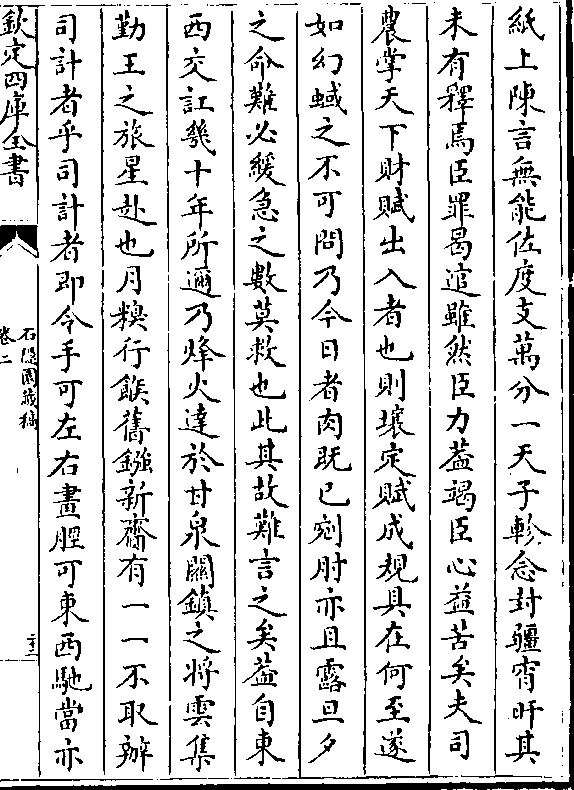 紙上陳言無能佐度支萬分一天子軫念封疆宵旰其
未有釋焉臣罪曷逭雖然臣力葢竭臣心益苦矣夫司
農掌天下財賦出入者也則壤定賦成規具在何至遂
如幻蜮之不可問乃今日者肉既已剜肘亦且露旦夕
之命難必緩急之數莫救也此其故難言之矣葢自東
西交訌幾十年所邇乃烽火達於甘泉關鎮之將雲集
勤王之旅星赴也月糗行餱舊鏹新齎有一一不取辦
司計者乎司計者即令手可左右畫脛可東西馳當亦
欽定四庫全書
石隱園藏稿
卷二